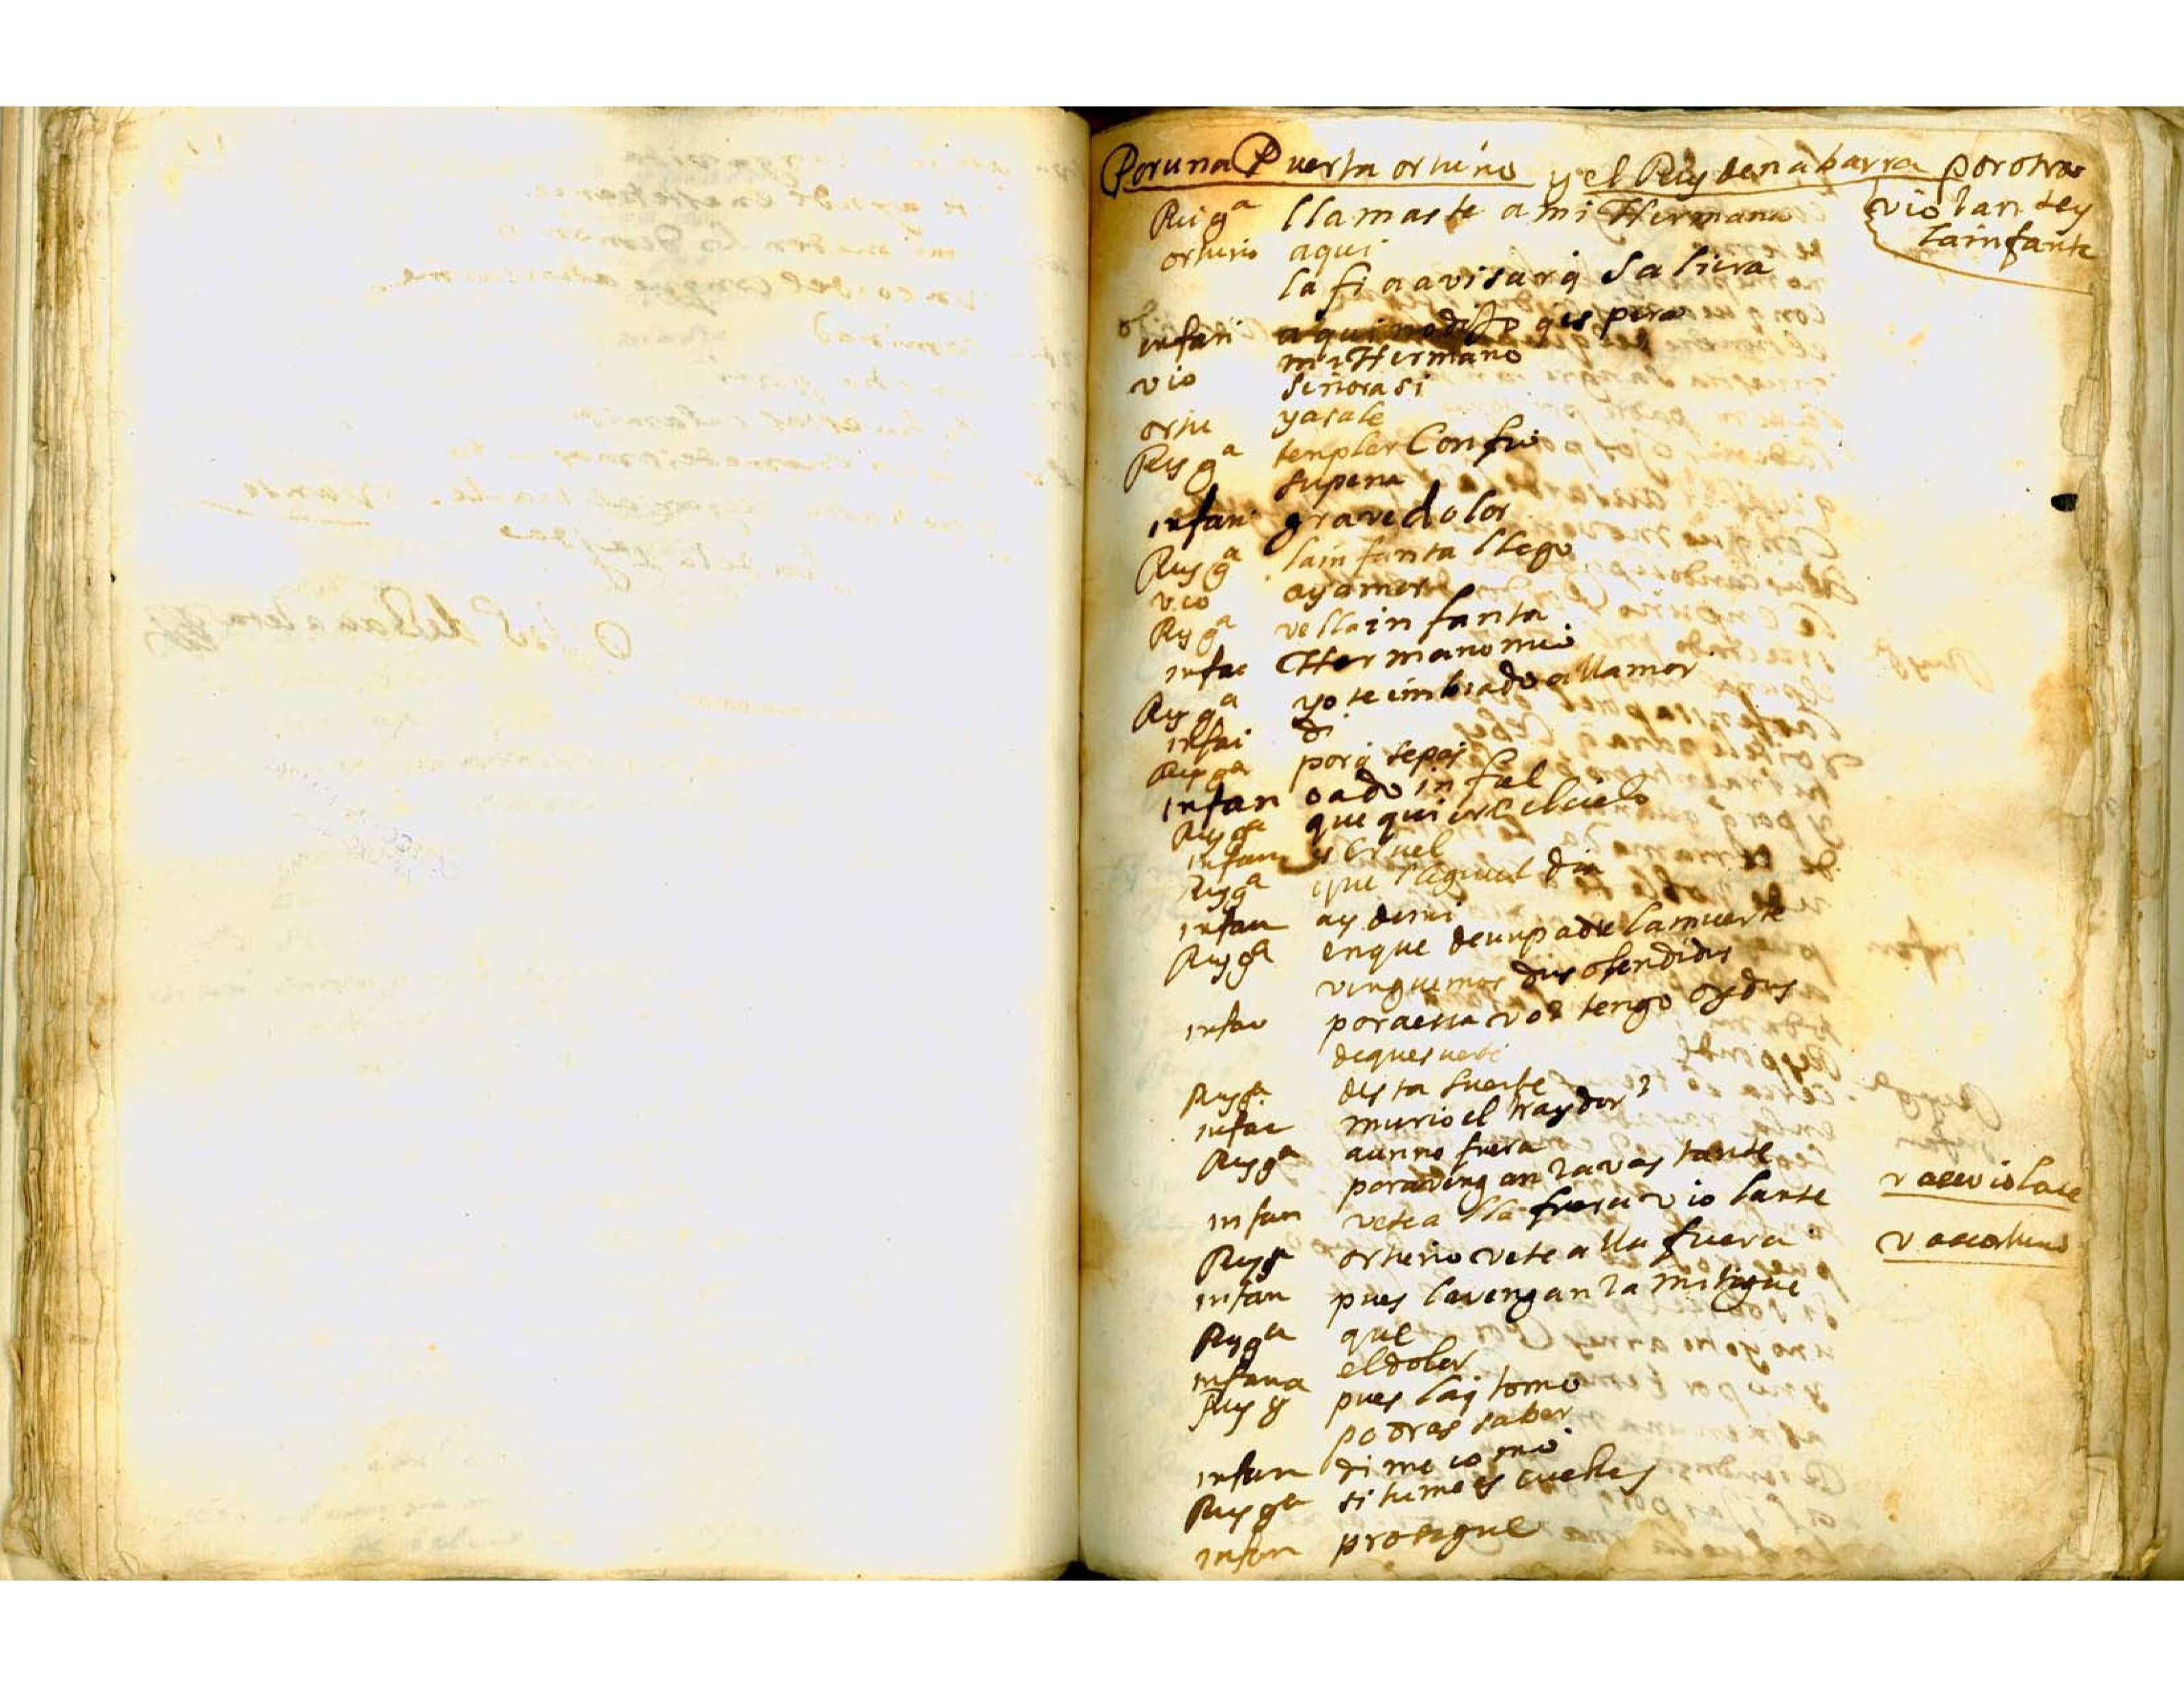 Por una Puerta ortuño y el Rey de nabarra por otra
violante y
la infanta
Rei gª llamaste a mi Hermana
ortuño aqui
la fi a avisar q saliera
infan aqui no diste q es pera
mi Hermano
vio señora si
ortu ya sale
Rey gª
su pena
infan grave dolor
Rey gª la infanta llego
vio ay amor
Rey gª vella infanta
infan Hermano mio
Rey gª yo te imbiado a llamar
infan di
Rey gª porq sepas
infan ado in fiel
Rey gª que quiere el cielo
infan es cruel
Rey gª que aquel dia
infan ay de mi
Rey gª en que de un padre la muerte
venguemos dos ofendidos
infan para essa voz tengo oydos
de que suerte
Rey gª desta suerte
infan murio el traydor?
Rey gª aun no fuera
para venganza vastante
infan vete alla fuera violante vase violante
Rey gª ortuño vete alla fuera vase ortuño
infan pues la venganza mitigue
Rey gª que
infana el dolor
Rey g pues la q tomo
podras saber
infan dime como
Rey gª si tu me escuches
infan prosigue